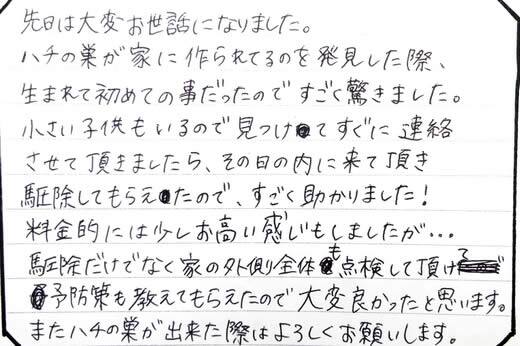 先日は大変お世話になりました。
ハチの巣が家に作られてるのを発見した際、
生まれて初めての事だったのですごく驚きました。
小さい子供もいるので見つけてすぐに連絡
させて頂きましたら、その日の内に来て頂き
駆除してもらえたので、すごく助かりました!
料金的には少しお高い感じもしましたが…
駆除だけでなく家の外側全体も点検して頂けて
予防策も教えてもらえたので大変良かったと思います。
またハチの巣が出来た際はよろしくお願いします。